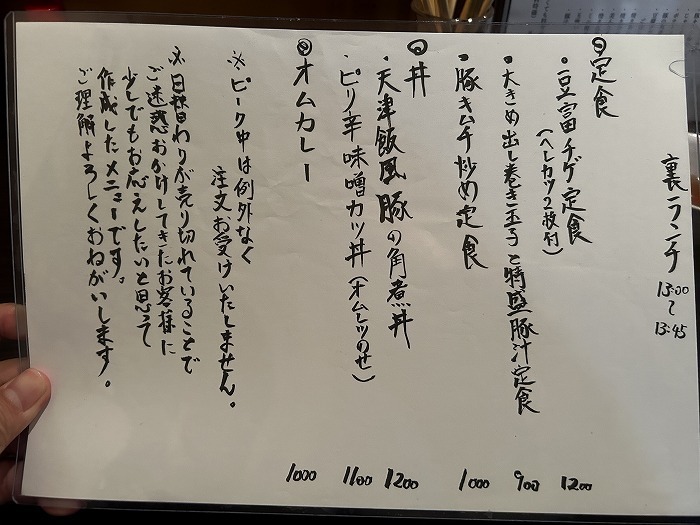 裏ランチ 13:00〜13:45
◎定食
・豆富チゲ定食 1200
(ヘレカツ2枚付)
・大きめ出し巻き玉子と特盛豚汁定食 900
・豚キムチ炒め定食 1000
◎丼
・天津飯風豚の角煮丼 1200
・ピリ辛味噌カツ丼(オムレツのせ) 1100
◎オムカレー 1000
※ピーク中は例外なく
注文お受けいたしません。
※日替わりが売り切れていることで
ご迷惑おかけしてきたお客様に
少しでもお応えしたいと思って
作成したメニューです。
ご理解よろしくおねがいします。